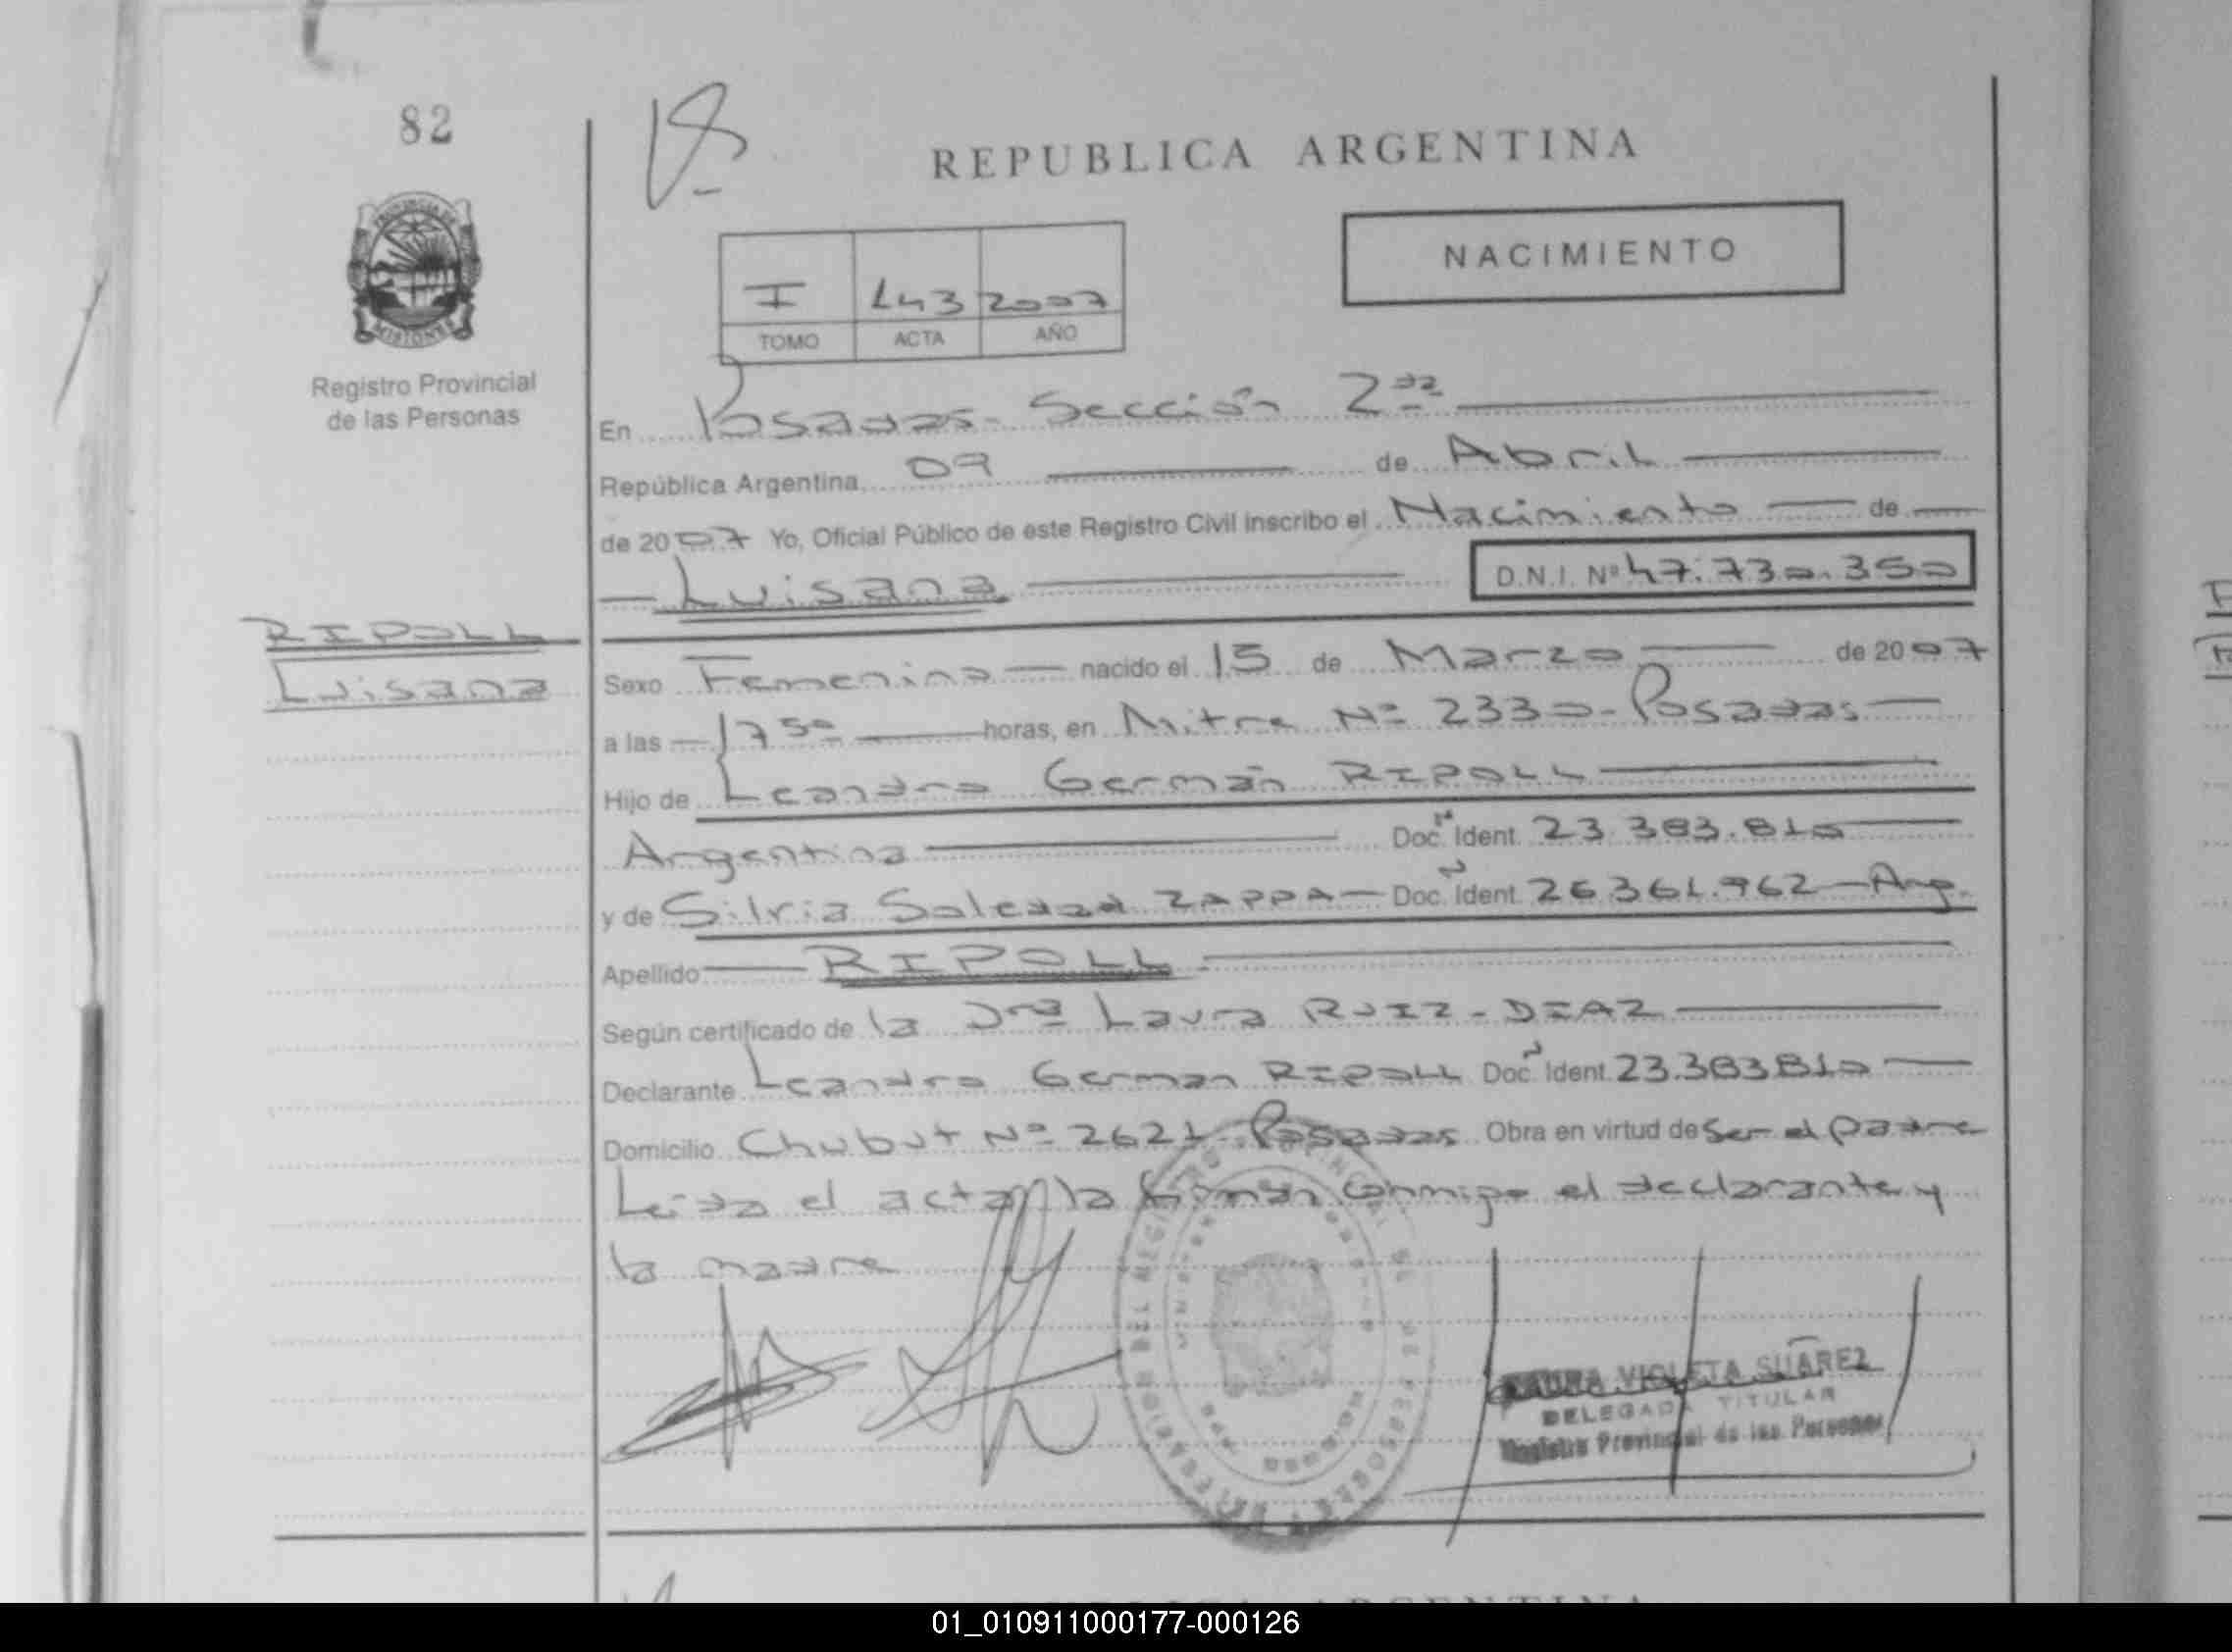 82
REPUBLICA ARGENTINA
NACIMIENTO
PROVINCIA DE
MISIONES
I 143 2007
TOMO ACTA AÑO
Registro Provincial
de las Personas
En Posadas - Sección 2da
República Argentina 09 de Abril
de 2007 Yo, Oficial Público de este Registro Civil inscribo el Nacimiento de
Luisana D.N.I. Nº 47.730.350
RIPOLL
Luisana
Sexo Femenino nacido el 15 de Marzo de 2007
a las 17 50 horas, en Mitre Nº 2330 - Posadas
Hijo de Leandro Germán RIPOLL
Argentino Doc. Ident. 23.383.810
y de Silvia Soledad ZAPPA Doc. Ident. 26.361.962 - Arg.
Apellido RIPOLL
Según certificado de la Dra Laura RUIZ - DIAZ
Declarante Leandro German RIPOLL Doc. Ident. 23.383810
Domicilio Chubut Nº 2621 - Posadas Obra en virtud de ser el padre
Leida el acta la firman conmigo el declarante y
la madre
VIOLETA SUAREZ
DELEGADA TITULAR
Registro Provincial de las Personas
ARGENTINA
01_010911000177-000126